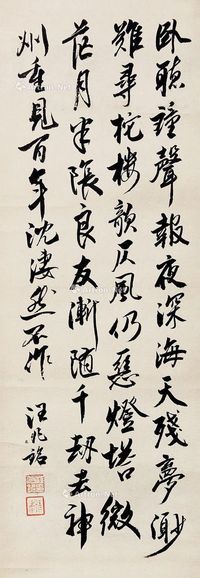 卧聽鐘聲報夜深海天殘夢渺
難尋柁樓欹仄風仍惡燈塔微
茫月半陰良友漸隨千劫去神
州重見百年沈淒然不作
汪兆銘